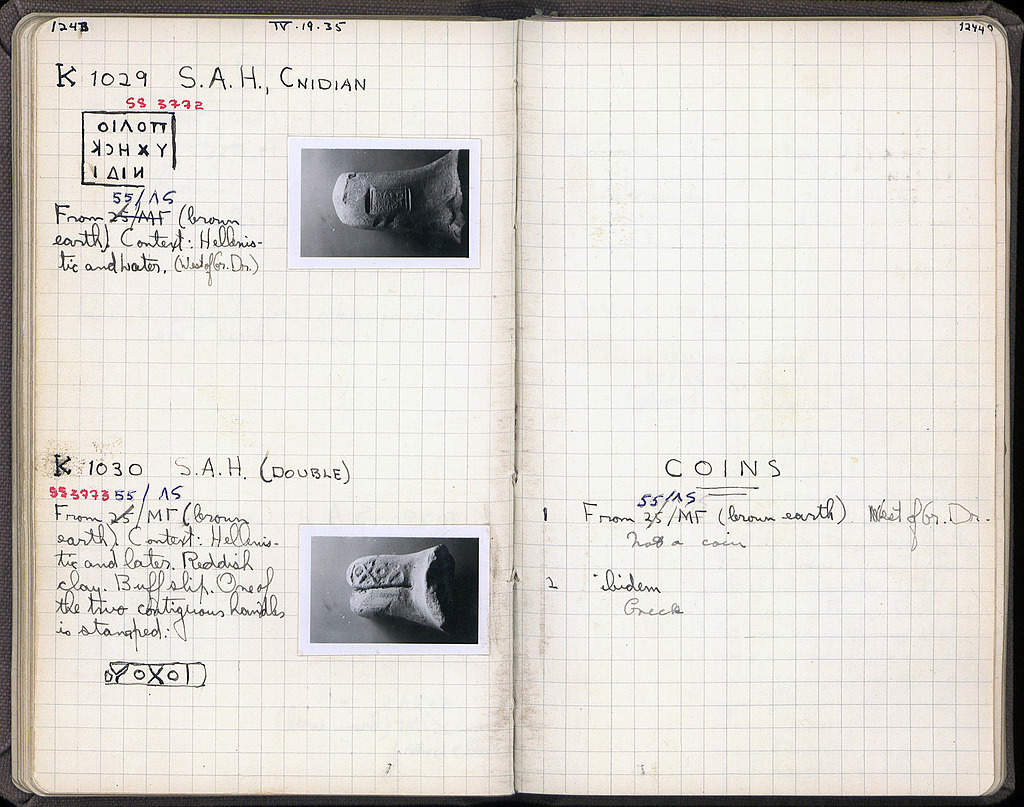 1243
IV.19.35
K 1029 S.A.H., CNIDIAN
SS 3772
ΠΟΛΙΟ
ΥΧΗCΚ
ΝΙΔΙ
55/ΛΣ
From 25/ΜΓ (brown
earth). Context: Hellenis-
tic and later. (West of Gr. Dr.)
K 1030 S.A.H. (DOUBLE)
SS 3773 55/ΛΣ
From 25/ΜΓ (brown
earth). Context: Hellenis-
tic and later. Reddish
clay. Buff slip. One of
the two contiguous handles
is stamped:
COINS
55/ΛΣ
1 From 25/ΜΓ (brown earth) West of Gr. Dr.
Not a coin
2 ibidem
Greek